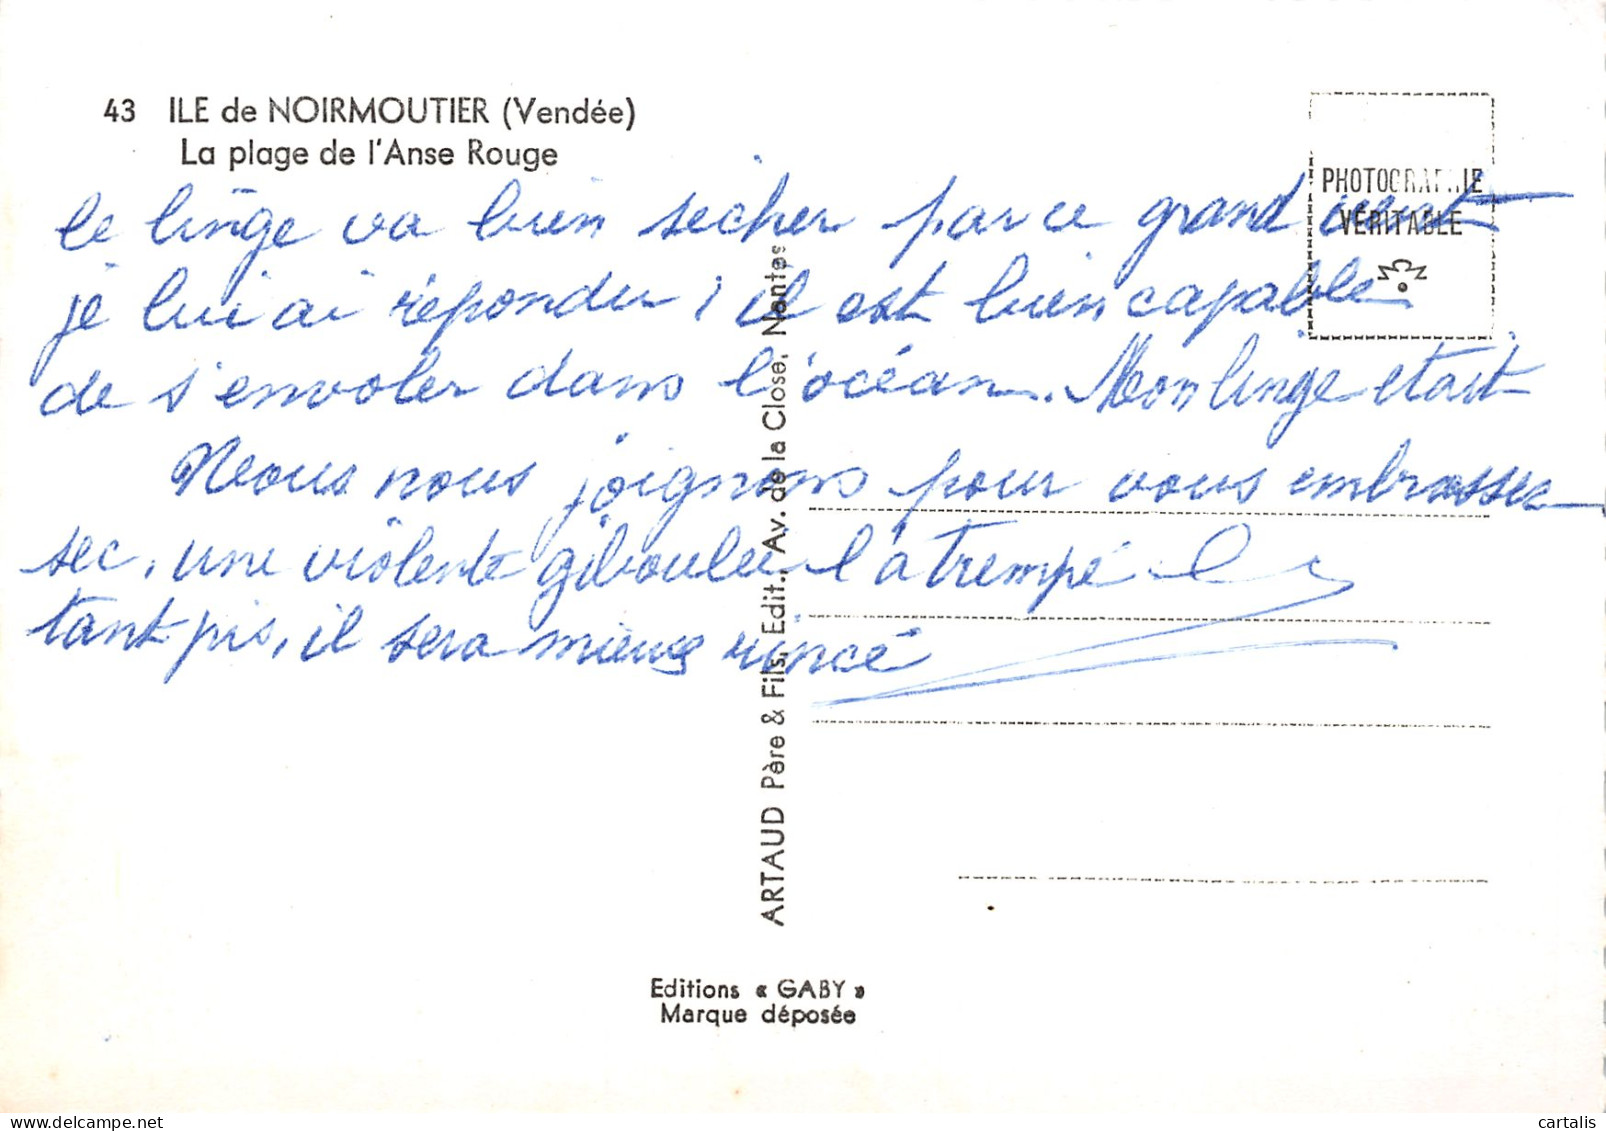 43 ILE de NOIRMOUTIER (Vendée)
La plage de l'Anse Rouge
PHOTOGRAPHIE
VÉRITABLE
le linge va bien sécher par ce grand vent
je lui ai répondu ; il est bien capable
de s'envoler dans l'océan. Mon linge était
Nous nous joignons pour vous embrasser
sec, une violente giboulée l'a trempé
tant pis, il sera mieux rincé
ARTAUD Père & Fils, Edit., Av. de la Close, Nantes
Editions « GABY »
Marque déposée
cartalis